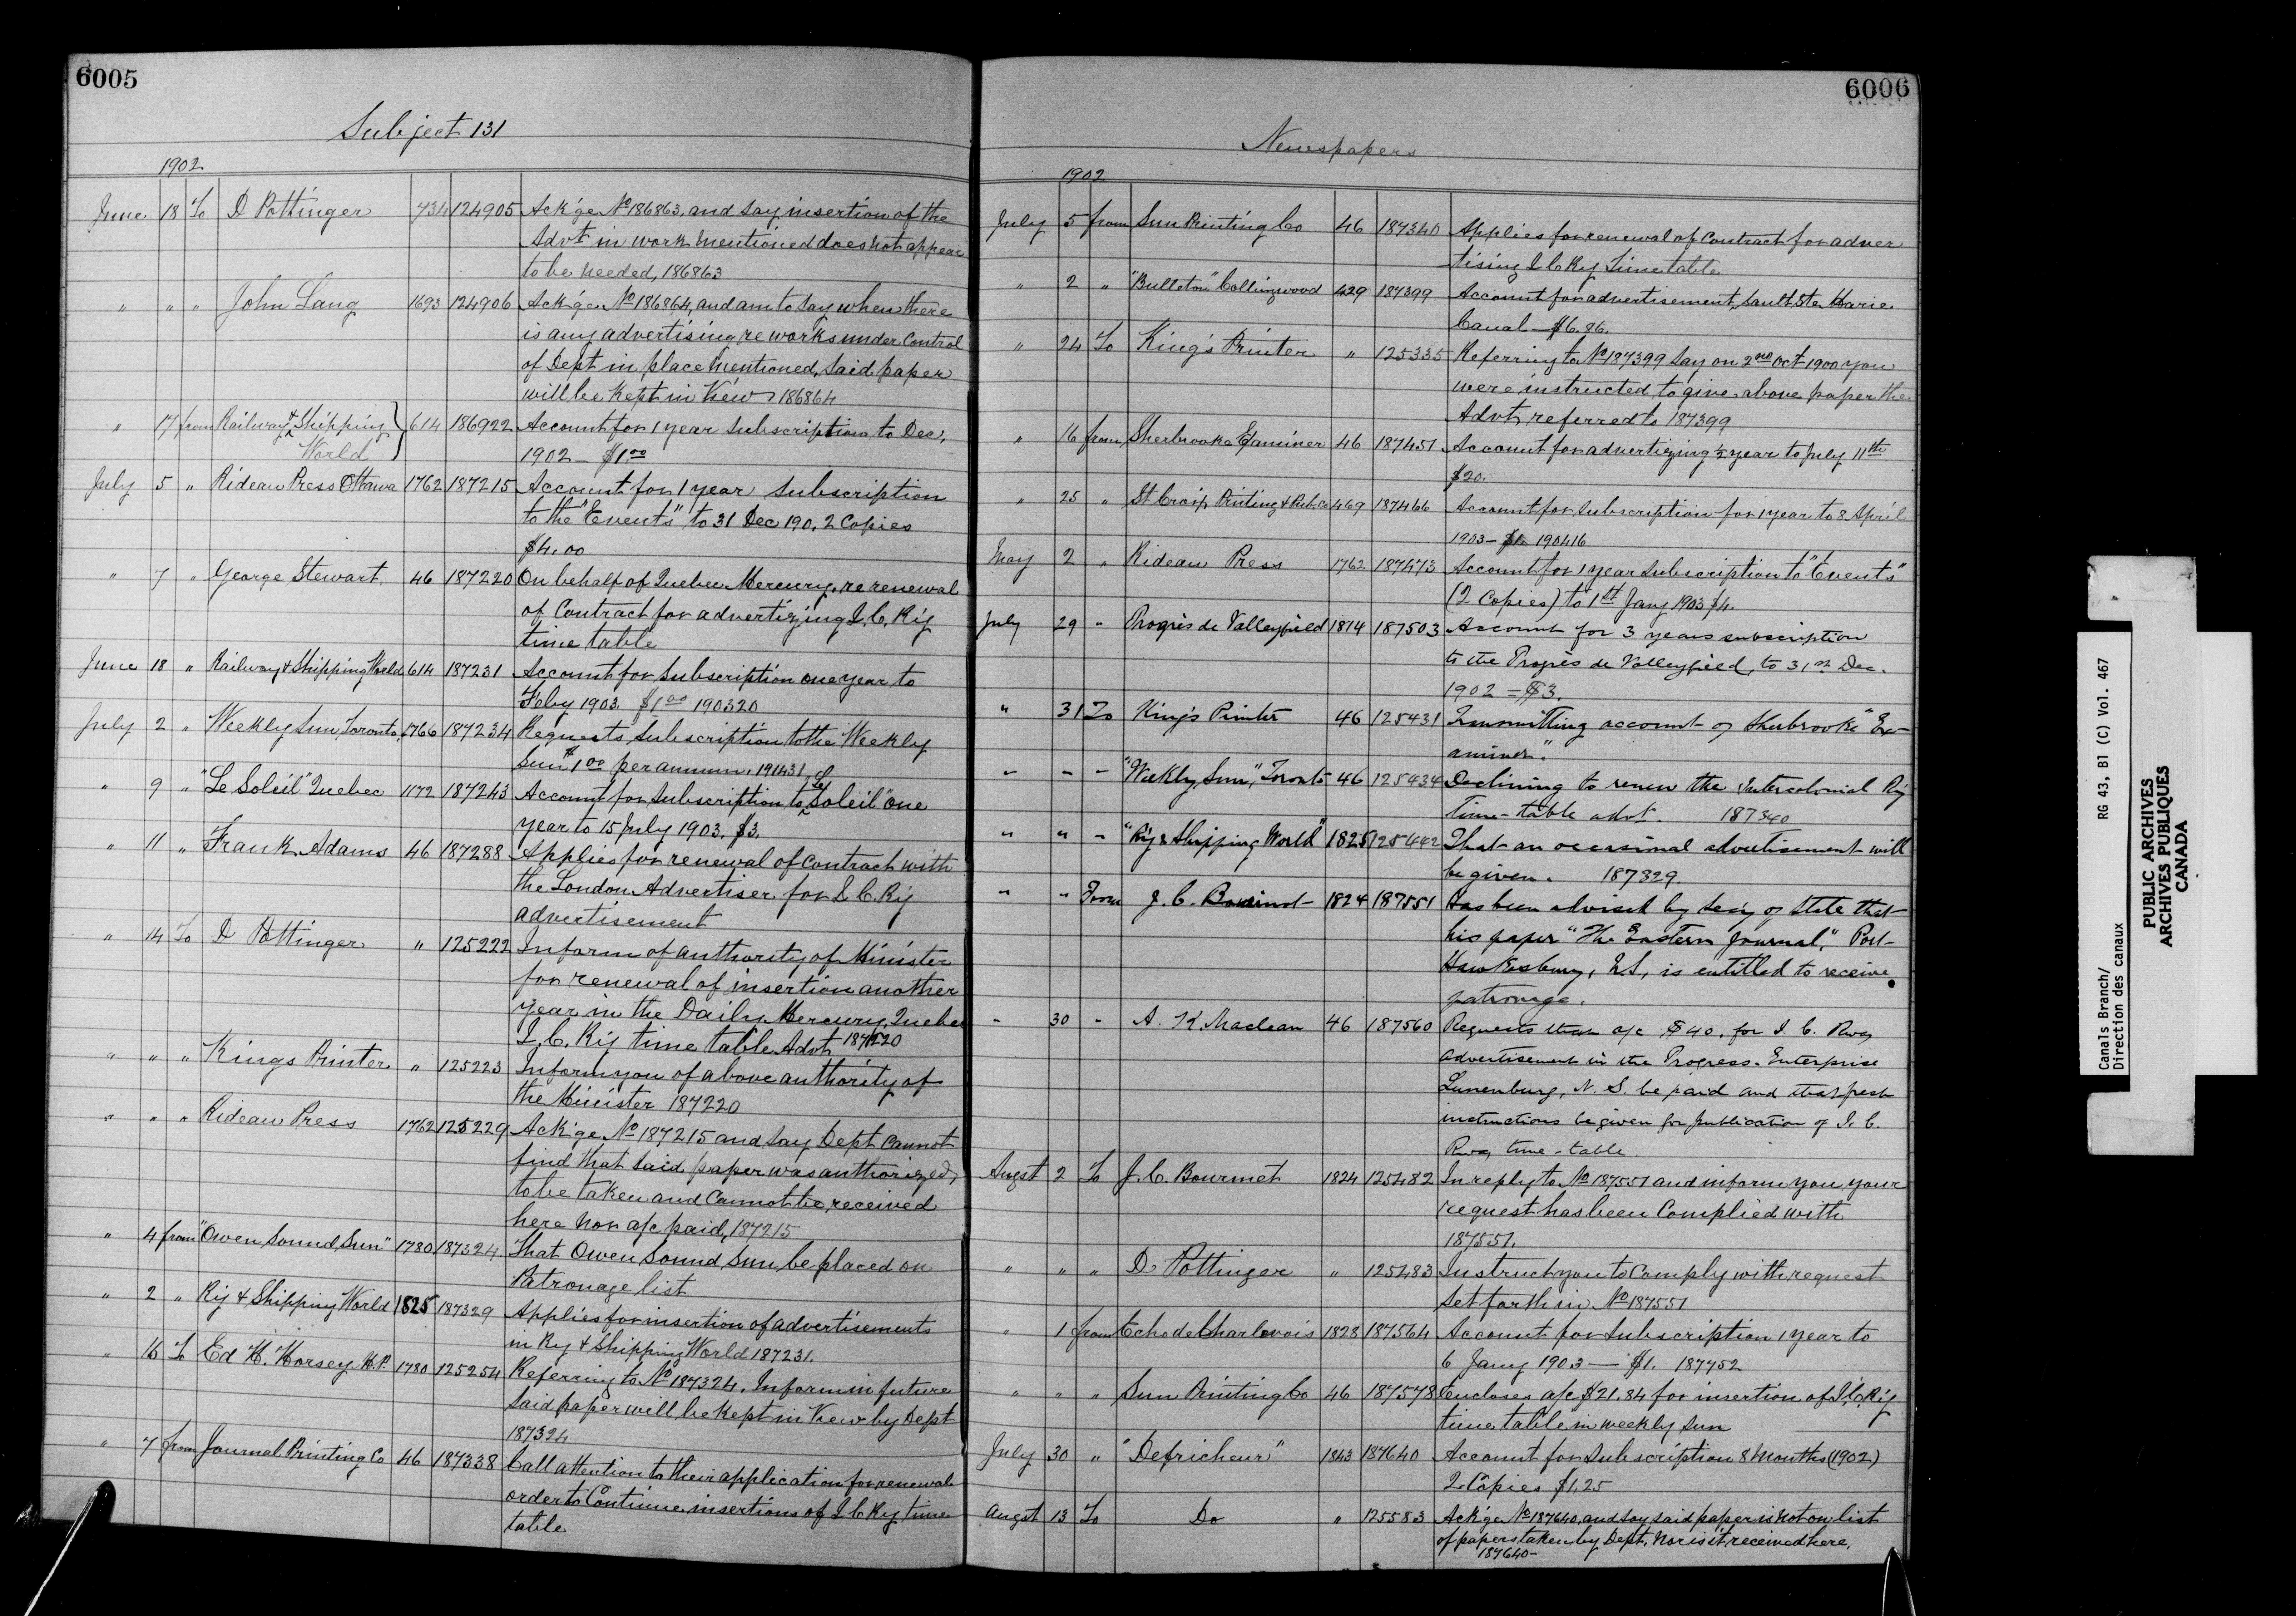 6005
Subject 131
1902
June 18 To D Pottinger 734 124905 Ack'ge No 186863, and say insertion of the
Advt in work mentioned does not appear
to be needed, 186863
" " " John Lang 1693 124906 Ack'ge No 186864, and am to say when there
is any advertising re works under control
of Dept in place mentioned, said paper
will be kept in view 186864
" 17 from Railway & Shipping World 614 186922 Account for 1 year subscription to Dec,
1902 — $1.00
July 5 " Rideau Press Ottawa 1762 187215 Account for 1 year subscription
to the "Events" to 31 Dec 190, 2 Copies
$4.00
" 7 " George Stewart 46 187220 On behalf of Quebec Mercury, re renewal
of Contract for advertizing I. C. Ry
time table
June 18 " Railway & Shipping World 614 187231 Account for subscription one year to
Feby 1903. $1.00 190320
July 2 " Weekly Sun Toronto, 1766 187234 Requests subscription to the Weekly
Sun $1.00 per annum. 191431
" 9 " "Le Soleil" Quebec 1172 187243 Account for subscription to "Le Soleil" one
year to 15 July 1903. $3.
" 11 " Frank Adams 46 187288 Applies for renewal of contract with
the London Advertiser for I. C. Ry
advertisement
" 14 To D Pottinger " 125222 Inform of authority of Minister
for renewal of insertion another
year in the Daily Mercury, Quebec
I. C. Ry time table Advt 187220
" " " Kings Printer " 125223 Inform you of above authority of
the Minister 187220
" " " Rideau Press 1762 125229 Ack'ge No 187215 and say Dept cannot
find that said paper was authorized,
to be taken and cannot be received
here nor a/c paid, 187215
" 4 from "Owen Sound, Sun" 1780 187324 That Owen Sound Sun be placed on
Patronage list
" 2 " Ry & Shipping World 1825 187329 Applies for insertion of advertisements
in Ry & Shipping World 187231.
" 15 To Ed H. Horsey M.P. 1780 125254 Referring to No 187324. Inform in future
said paper will be kept in view by Dept
187324
" 7 from Journal Printing Co 46 187338 Call attention to their application for renewal
order to Continue insertions of I C Ry time
table
6006
Newspapers
1902
July 5 from Sun Printing Co 46 187340 Applies for renewal of contract for adver
tising I C Ry Time table
" 2 " "Bulleton" Collingwood 429 187399 Account for advertisement, Sault Ste Marie
Canal — $6.86.
" 24 To King's Printer " 125335 Referring to No 187399 say on 2nd Oct 1900 you
were instructed to give above paper the
Advt, referred to 187399
" 16 from Sherbrooke Examiner 46 187451 Account for advertizing ½ year to July 11th
$20.
" 25 " St Croix Printing & Pub. Co 469 187466 Account for subscription for 1 year to 8 April
1903 — $1. 190416
May 2 " Rideau Press 1762 187473 Account for 1 year subscription to "Events"
(2 Copies) to 1st Jany 1903 $4.
July 29 " Progrès de Valleyfield 1814 187503 Account for 3 years subscription
to the Progrès de Valleyfield, to 31st Dec.
1902 = $3.
" 31 To King's Printer 46 125431 Transmitting account of Sherbrooke "Ex-
aminer."
" " " "Weekly Sun," Toronto 46 125434 Declining to renew the Intercolonial Ry
Time-table advt. 187340
" " " "Ry & Shipping World" 1825 125442 That an occasional advertisement will
be given. 187329.
" " From J. C. Bourinot 1824 187551 Has been advised by Sec'y of State that
his paper "The Eastern Journal," Port
Hawkesbury, N.S., is entitled to receive
patronage.
" 30 " A. K. Maclean 46 187560 Requests that a/c $40. for I. C. Rwy
advertisement in the Progress-Enterprise
Lunenburg, N. S. be paid and that fresh
instructions be given for publication of I. C.
Rwy time-table
Augst 2 To J. C. Bourinot 1824 125482 In reply to No 187551 and inform you your
request has been Complied with
187551.
" " " D. Pottinger " 125483 Instruct you to comply with request
set forth in No 187551
" 1 from Echo de Charlevois 1828 187564 Account for subscription 1 year to
6 Jany 1903 — $1. 187752
" " " Sun Printing Co 46 187578 Encloses a/c $21.84 for insertion of I. C. Ry
time table in weekly Sun
July 30 " "Defricheur" 1843 187640 Account for subscription 8 months (1902)
2 Copies $1.25
Augst 13 To Do " 125583 Ack'ge No 187640, and say said paper is not on list
of papers taken by Dept. nor is it received here.
187640 —
Canals Branch/
Direction des canaux
RG 43, BI (C) Vol. 467
PUBLIC ARCHIVES
ARCHIVES PUBLIQUES
CANADA